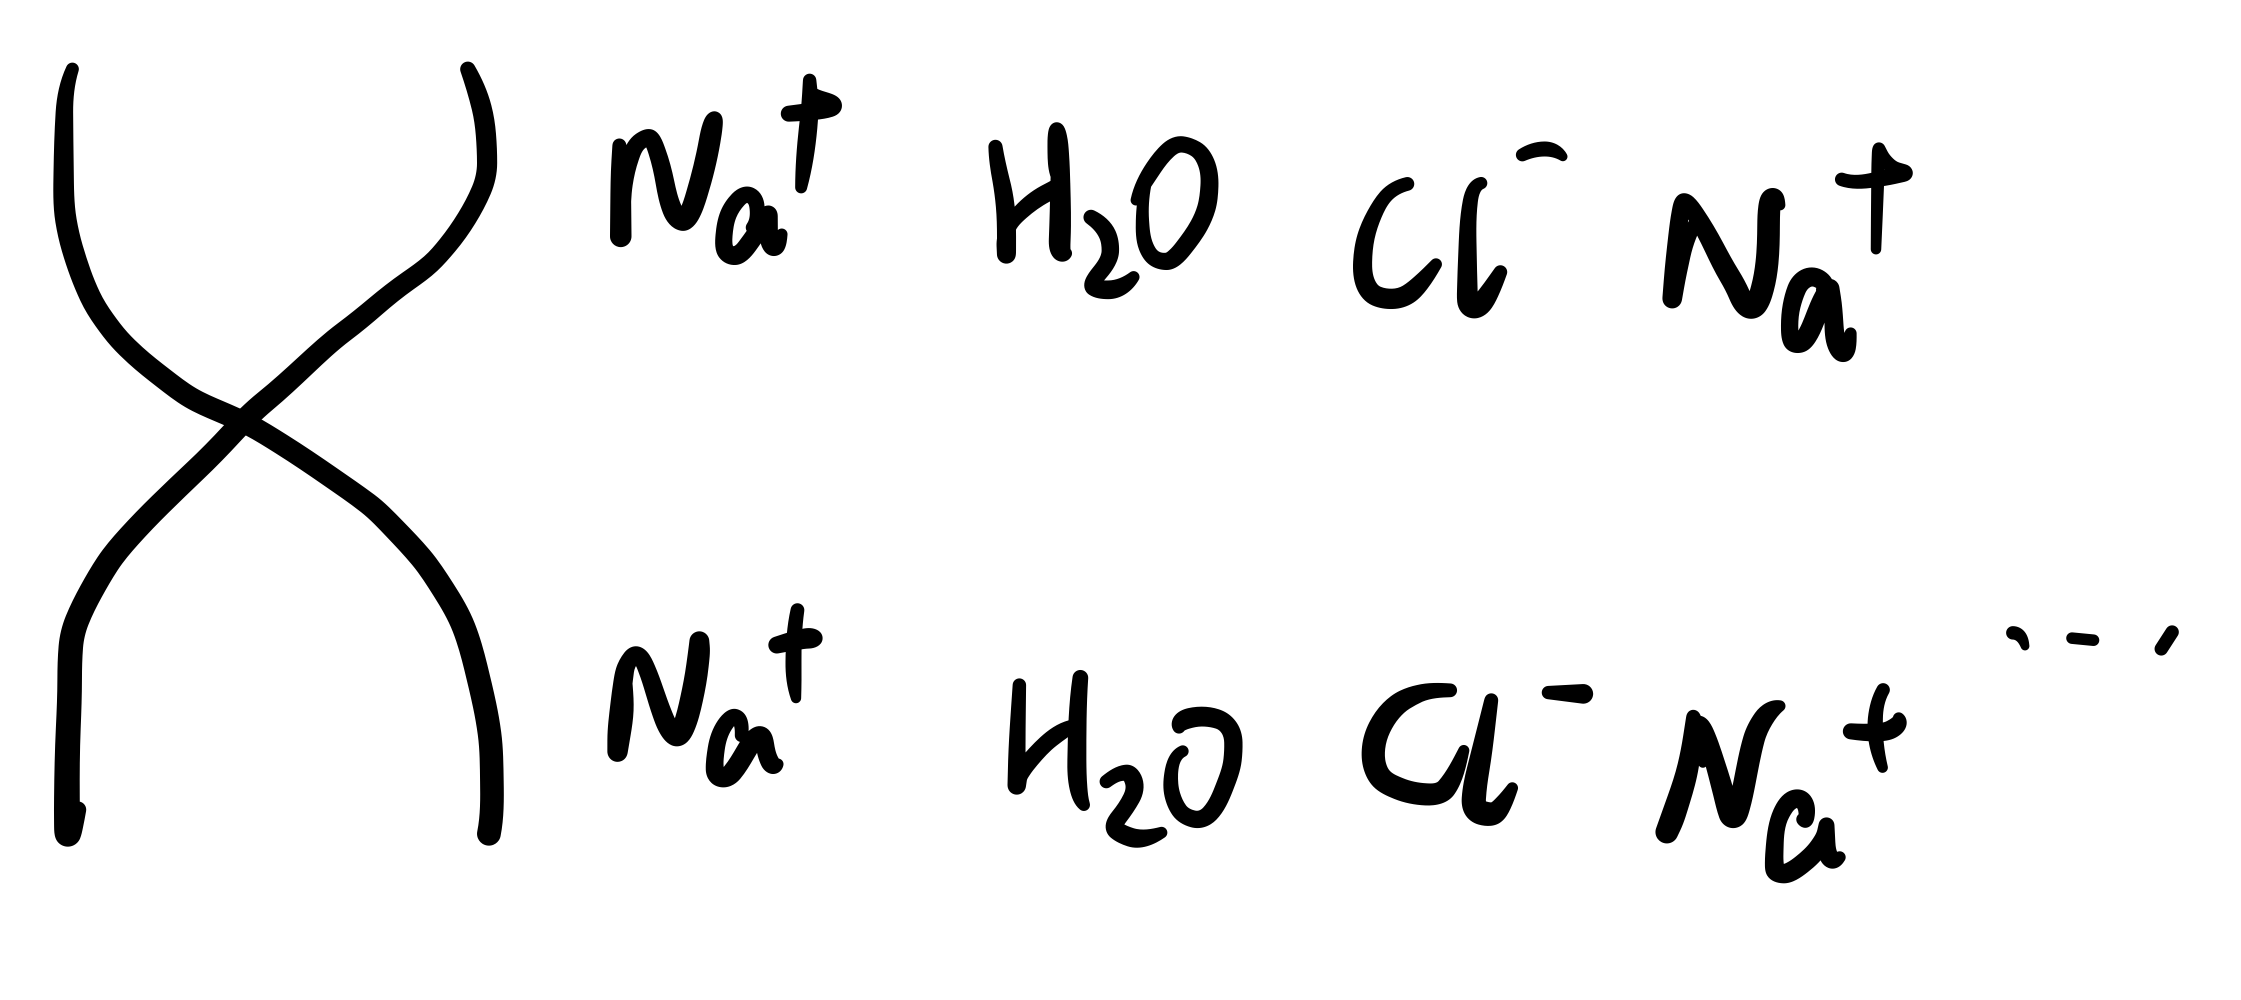 Na⁺ H₂O Cl⁻ Na⁺
Na⁺ H₂O Cl⁻ Na⁺ ---